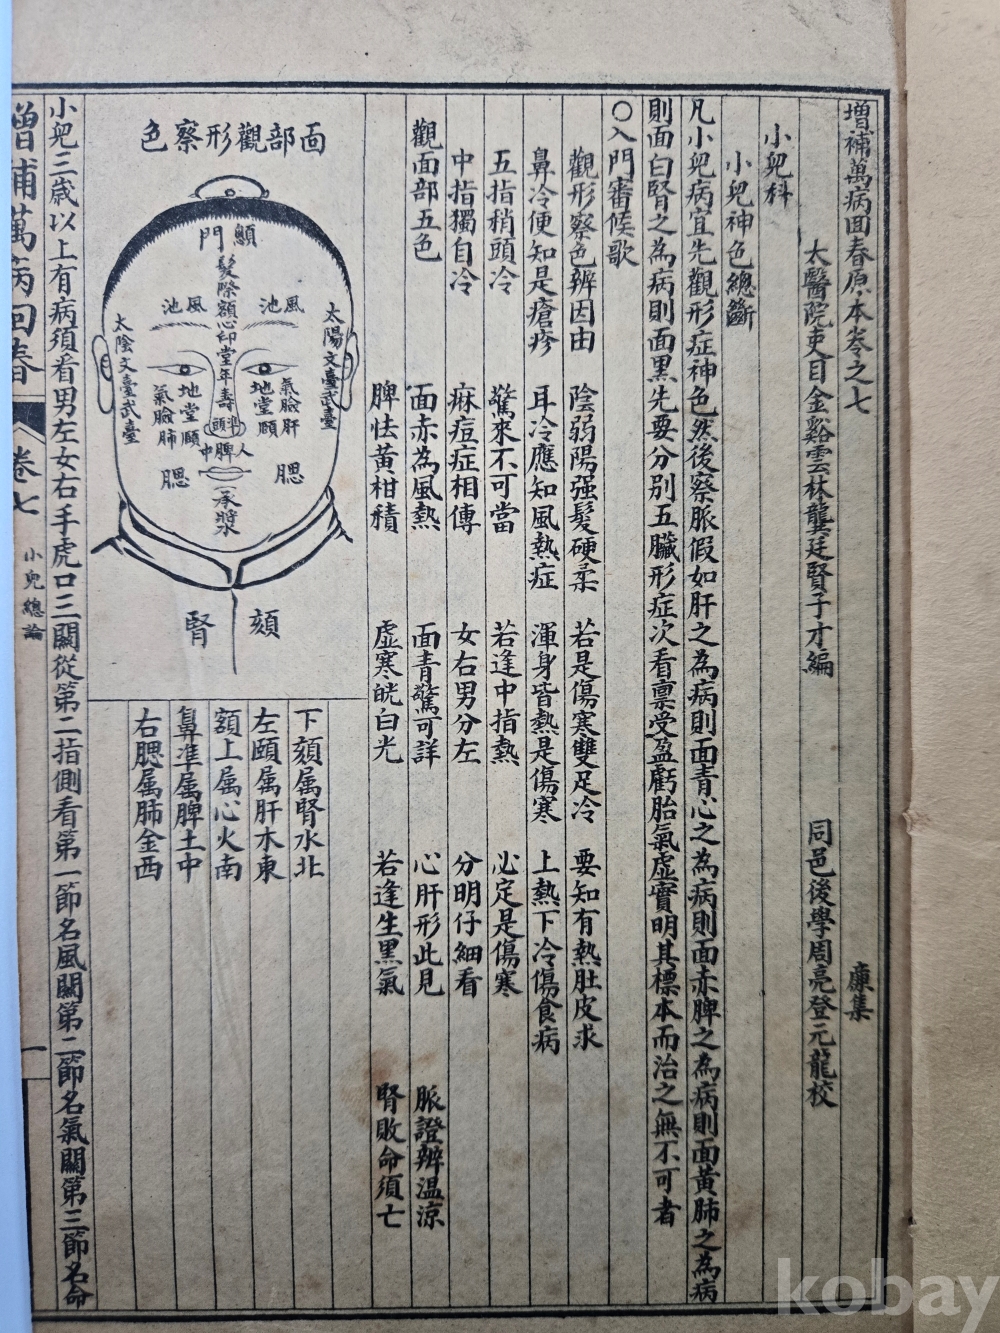 增補萬病回春原本卷之七
康集
太醫院吏目金谿雲林龔廷賢子才編
同邑後學周亮登元龍校
小兒科
小兒神色總斷
凡小兒病宜先觀形症神色然後察脈假如肝之為病則面青心之為病則面赤脾之為病則面黃肺之為病
則面白腎之為病則面黑先要分別五臟形症次看禀受盈虧胎氣虛實明其標本而治之無不可者
○入門審候歌
觀形察色辨因由 陰弱陽强髮硬柔 若是傷寒雙足冷 要知有熱肚皮求
鼻冷便知是瘡疹 耳冷應知風熱症 渾身皆熱是傷寒 上熱下冷傷食病
五指稍頭冷 驚來不可當 若逢中指熱 必定是傷寒
中指獨自冷 痳痘症相傳 女右男分左 分明仔細看
觀面部五色 面赤為風熱 面青驚可詳 心肝形此見 脈證辨温涼
脾怯黃柑積 虛寒皝白光 若逢生黑氣 腎敗命須亡
面部觀形察色
顖門
髮際額心印堂年壽
準頭
風池
風池
太陽文臺武臺
太陰文臺武臺
氣臉肝
地堂頤
地堂頤
氣臉肺
人脾中
腮
腮
承漿
頦
腎
下頦属腎水北
左頤属肝木東
額上属心火南
鼻凖属脾土中
右腮属肺金西
小兒三歳以上有病須看男左女右手虎口三關從第二指側看第一節名風關第二節名氣關第三節名命
增補萬病回春
卷七
小兒總論
一
kobay